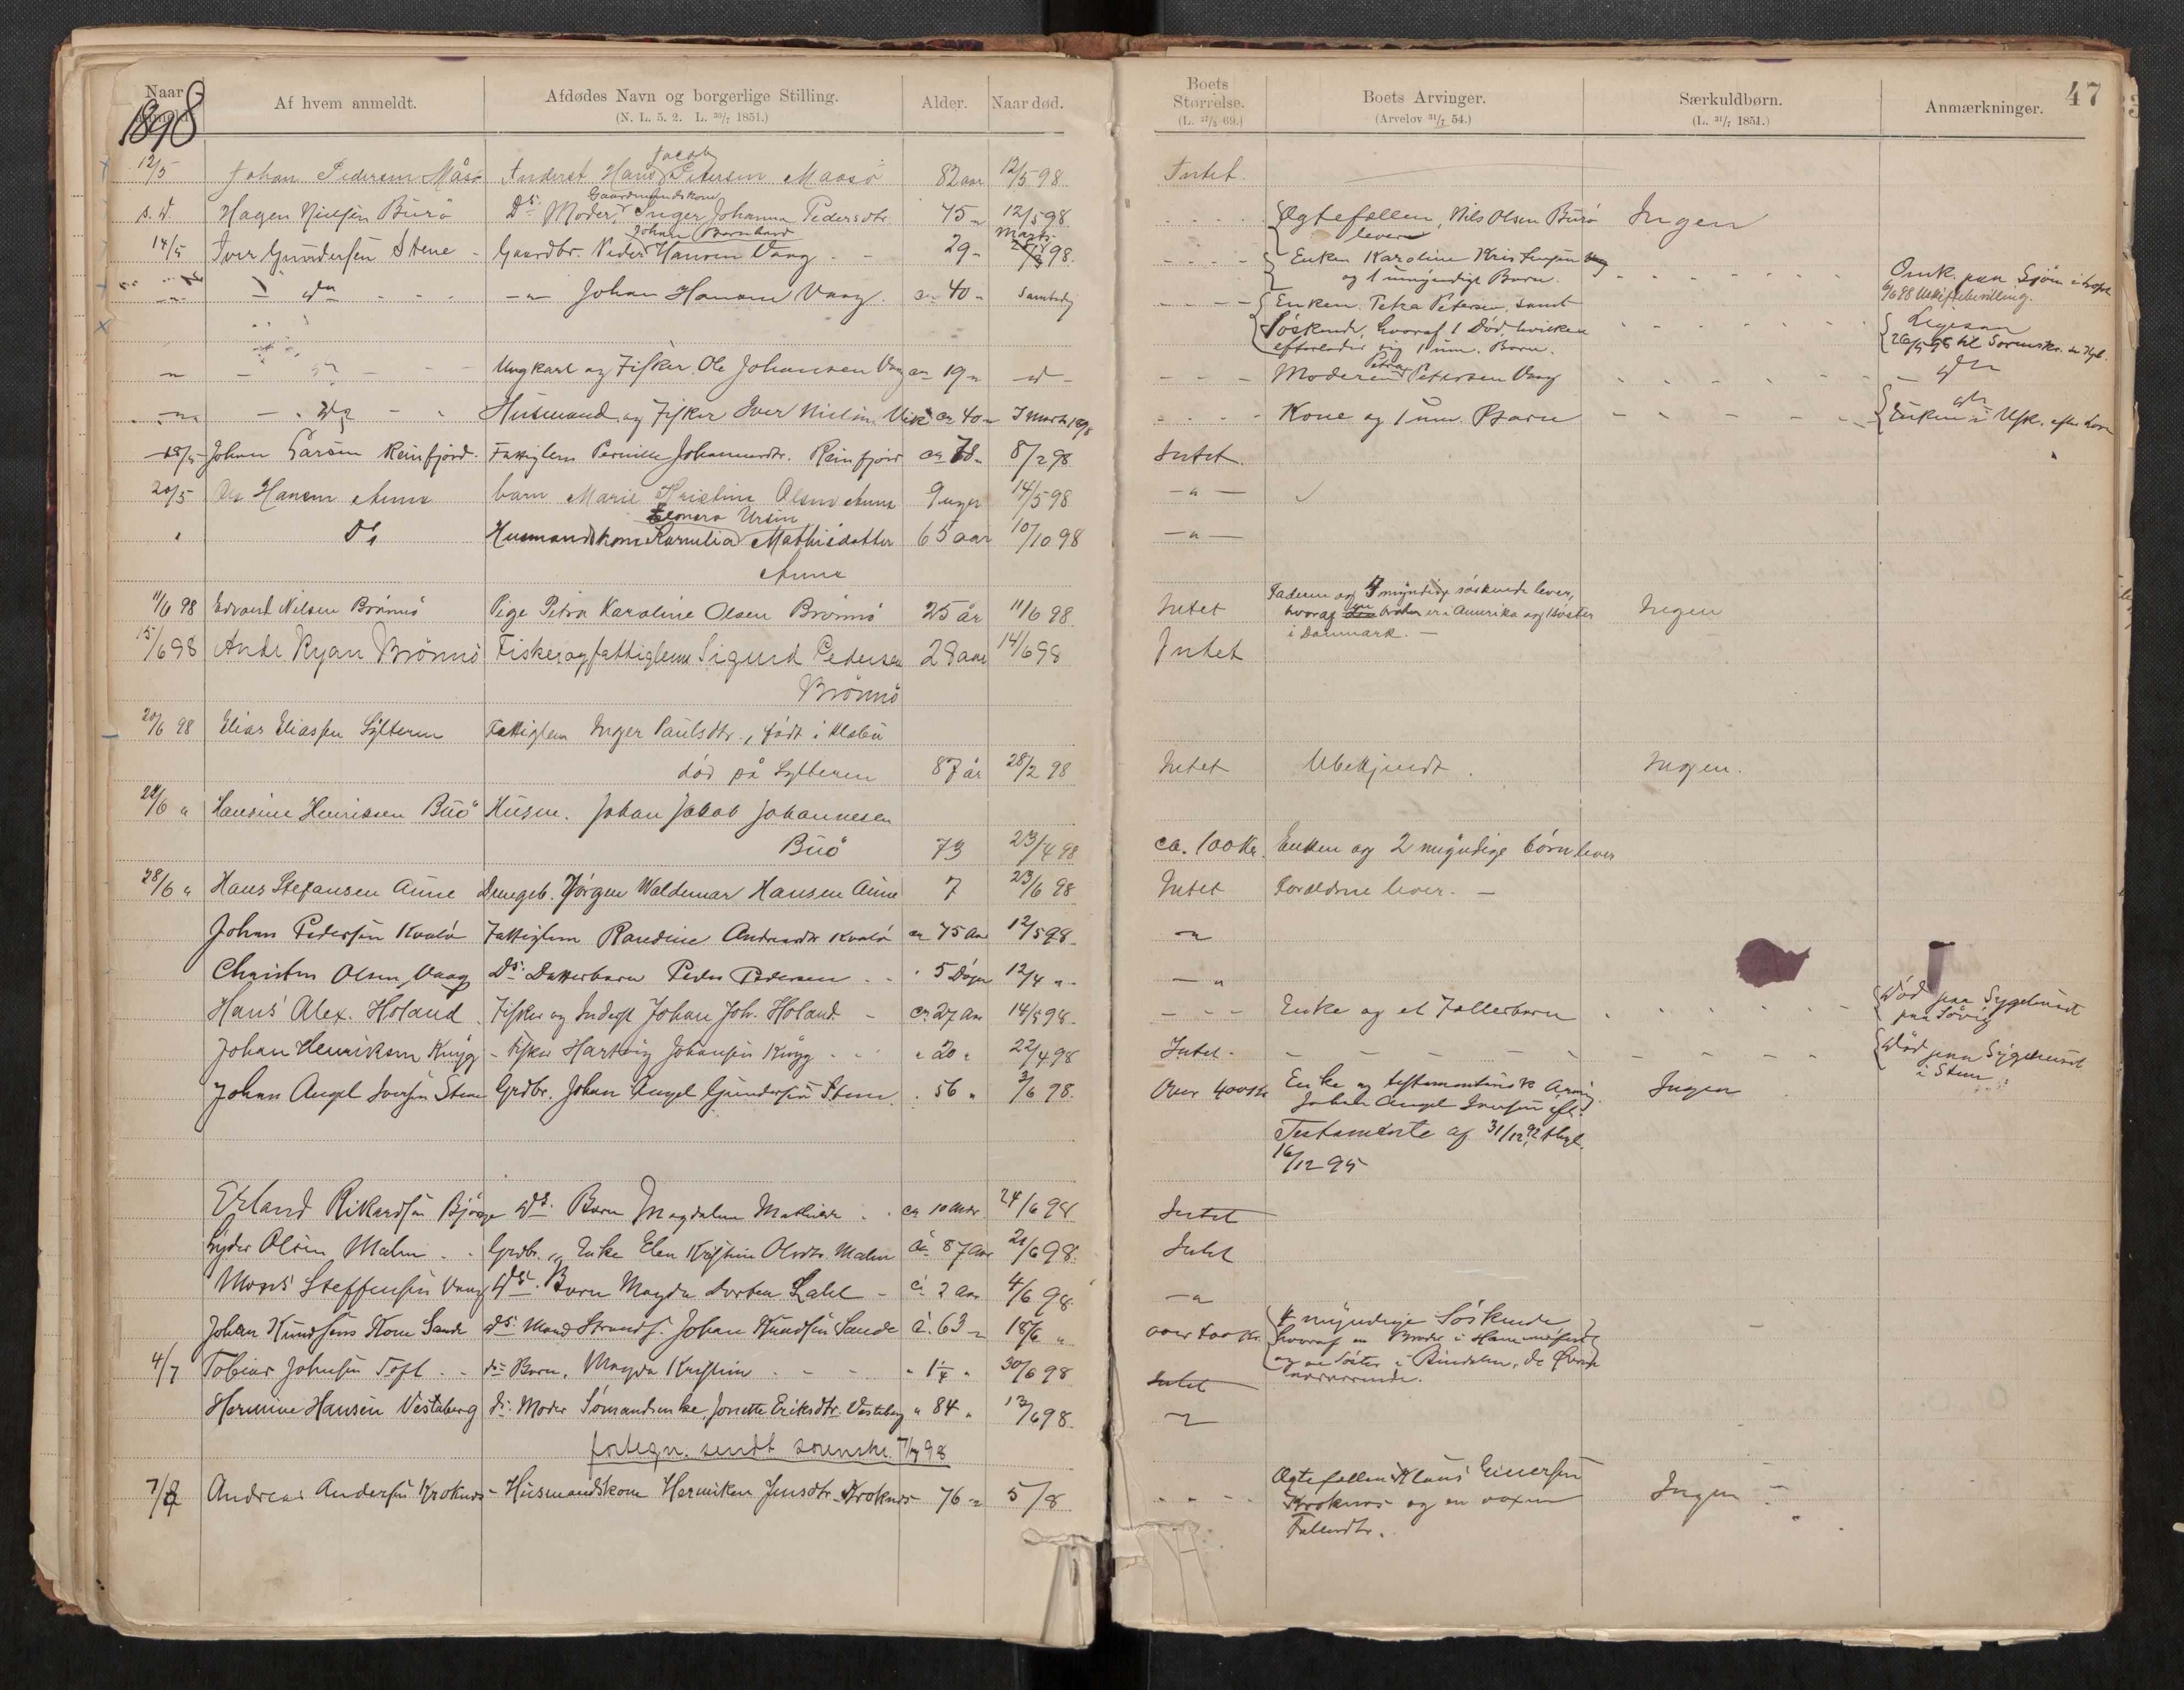 Naar anmeldt. Af hvem anmeldt. Afdødes Navn og borgerlige Stilling. Alder. Naar død. Boets Størrelse. Boets Arvinger. Særkuldbørn. Anmærkninger. 47
(N. L. 5. 2. L. 30/7 1851.) (L. 27/3 69.) (Arvelov 31/7 54.) (L. 31/7 1851.)
1898
Jacob
12/5 Johan Pedersen Måsø Inderst Hans Petersen Maasø 82 aar 12/5 98 Intet.
Gaardmandskone
s. d. Hagen Nielsen Burø Ds. Moder, Inger Johanna Pedersdtr. 75 " 12/5 98 Ægtefællen, Nils Olsen Burø Ingen
lever
Johan Bernhard
14/5 Iver Gundersen Stene Gaardbr. Peder Hansen Vaag 29 " Marts 98. Enken Karoline Kristensen
og 1 umyndigt Barn.
do - " - Johan Hansen Vaag. ca 40 " Samtidig Enken Petra Petersen, samt
Søskende, hvoraf 1 Død, hvilken
efterlader sig 1 um. Barn.
Omk. paa Sjøen
6/6 98 Uskiftebevilling.
26/5 98 til Sorenskr.
Ungkarl og Fisker Ole Johansen Vaag ca 19 " d Moderen Petra Petersen Vaag do
do Husmand og Fisker Iver Nielsen Vik ca 40 " 3 Marts 1898 Kone og 1 um. Barn do
Enken i Usk.
18/5 Johan Larsen Reinfjord Fattiglem Pernille Johannesdtr. Reinfjord ca 78 " 8/2 98 Intet.
20/5 Ole Hansen Aune barn Marie Kristine Olsen Aune 9 uger 14/5 98 - " -
Elenora Ursin
" Ds Husmandskone Kornelia Mathisdatter 65 aar 10/10 98 - " -
Aune
11/6 98 Edvard Nilsen Brønnø Pige Petra Karoline Olsen Brønnø 25 år 11/6 98 Intet Faderen og 7 myndige søskende lever, Ingen
hvoraf en broder er i Amerika og 1 søster
i Danmark. -
15/6 98 Andr Ryan Brønnø Fisker og fattiglem Sigurd Pedersen 28 aar 14/6 98 Intet
Brønnø
20/6 98 Elias Eliassen Sylteren Fattiglem Inger Paulsdtr., født i
død på Sylteren 87 år 28/2 98 Intet Ubekjendt. Ingen.
22/6 " Hansine Henriksen Buø Husm. Johan Jakob Johannesen
Buø 73 23/4 98 ca. 100 Kr. Enken og 2 myndige børn lever
28/6 " Hans Stefansen Aune Drengeb. Jørgen Waldemar Hansen Aune 7 23/6 98 Intet Forældrene lever. -
Johan Pedersen Kvalø Fattiglem Randine Andreasdtr Kvalø ca 75 Aar 12/5 98. "
Christen Olsen Vaag Ds. Datterbarn Peder Pedersen 5 Døgn 12/4 " - "
Hans Alex. Holand Fisker og Inderst Johan Joh. Holand ca 27 Aar 14/5 98. Enke og et Fællesbarn Død paa Sygehuset
paa Søvig
Johan Henriksen Knyg Fisker Hartvig Johansen Knyg " 20 " 22/4 98 Intet - Død paa Sygehuset
i Stene
Johan Angel Iversen Stene Grdbr. Johan Angel Gundersen Stene. 56 " 3/6 98. Over 400 Kr Enke og testamentarisk Arving Ingen
Johan Angel Iversen efl.
Testamente af 31/12 92, thgl.
16/12 95
Erland Rikardsen Ds. Barn Magdalene Mathilde ca 10 Mdr. 24/6 98 Intet
Lyder Olsen Malm Grdbr. Enke Elen Kristine Olsdtr. Malm ca 87 Aar 21/6 98. Intet
Mons Steffensen Vaag Ds. Barn Magda Dortea ca 2 Aar 4/6 98 - "
Johan Knudsens Kone Sande Ds. Mand Strands. Johan Knudsen Sande ca. 63 " 18/6 " over 400 Kr. 4 myndige Søskende,
hvoraf en Broder i Hammerfest
og en Søster i Bindalen, de Øvrige
nærværende.
4/7 Tobias Johnsen Toft ds Barn, Magda Kristine " 1 1/4 " 30/6 98 Intet
Hermine Hansen Vestaberg ds. Moder Sømandsenke Jonette Eriksdtr. Vestaberg " 84 " 13/6 98. "
fortegn. sendt sorenskr. 7/7 98
7/8 Andreas Andersen Kroknes Husmandskone Henriken Jensdtr. Kroknes 76 " 5/8 Ægtefællen Klaus Einersen Ingen
Kroknes og en voxen
Fællesdtr.